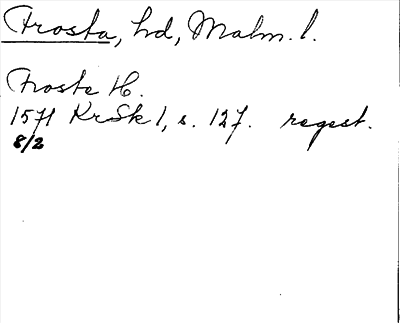 Frosta, hd, Malm. l.
Froste H.
1571 KrSk 1, s. 127. regest.
8/2